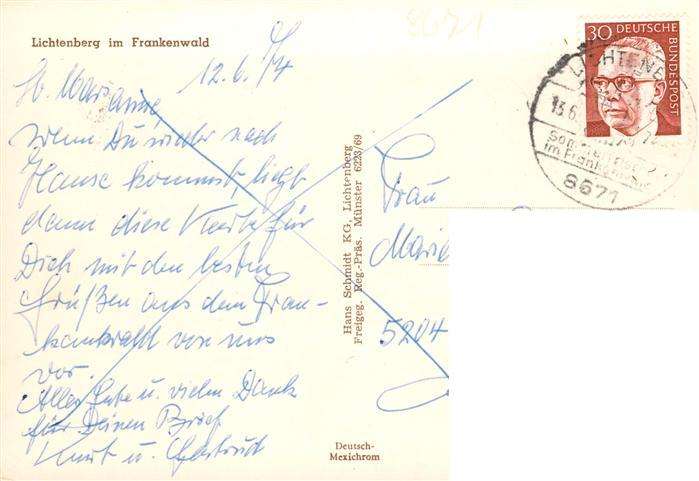 8671
Lichtenberg im Frankenwald
12.6.74
Lb. Marianne
wenn Du wieder nach
Hause kommst, liegt
dann diese Karte für
Dich mit den besten
Grüßen aus dem Fran-
kenwald von uns
vor.
Alles Gute u. vielen Dank
für Deinen Brief
Kurt u. Gertrud
Hans Schmidt KG., Lichtenberg
Freigeg. Reg.-Präs. Münster 6223/69
Deutsch-
Mexichrom
Frau
Maria
5204
30 DEUTSCHE
BUNDESPOST
LICHTENB
13.6.
im Frankenwald
8671